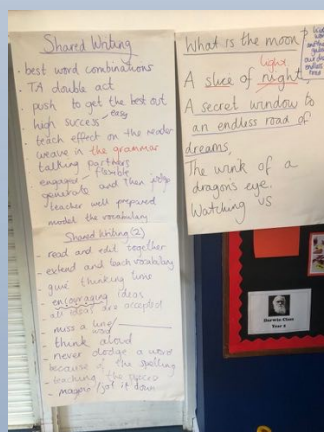 Shared Writing
- best word combinations
- TA double act
push to get the best out
- high success - easy
- teach effect on the reader
weave in the grammar
talking partners
engages - flexible
generate and then judge
teacher well prepared
model the vocabulary
Shared Writing (2)
- read and edit together
- extend and teach vocabulary
- give thinking time
- encouraging ideas
- all ideas are accepted
- miss a line/
word
- think aloud
- never dodge a word
because of the spelling
- teaching the process
- magpie / jot it down
What is the moon?
light
A slice of night
A secret window to
an endless road of
dreams.
The wink of a
dragon's eye.
Watching us
Darwin Class
Year 6